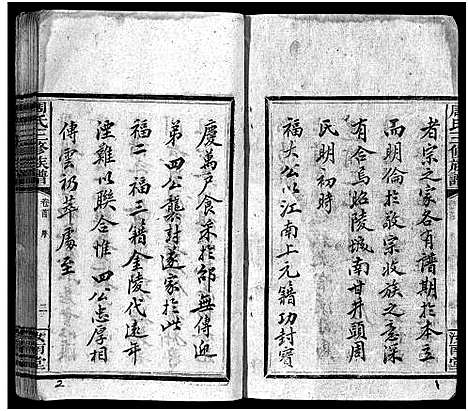 者宗之家各有譜期於本立
而明倫於敬宗收族之意深
有合焉昭陵城南甘井頭周
氏明初時
福大公以江南上元籍功封寶
慶萬戶食采於邵無傳迎
弟四公襲封遂家於此
福二福三籍金陵代遠年
湮難以聯合惟四公志厚相
傳雲礽萃處至
周氏三修族譜
卷首 序
二
汝南堂
周氏三修族譜
汝南堂
1
2